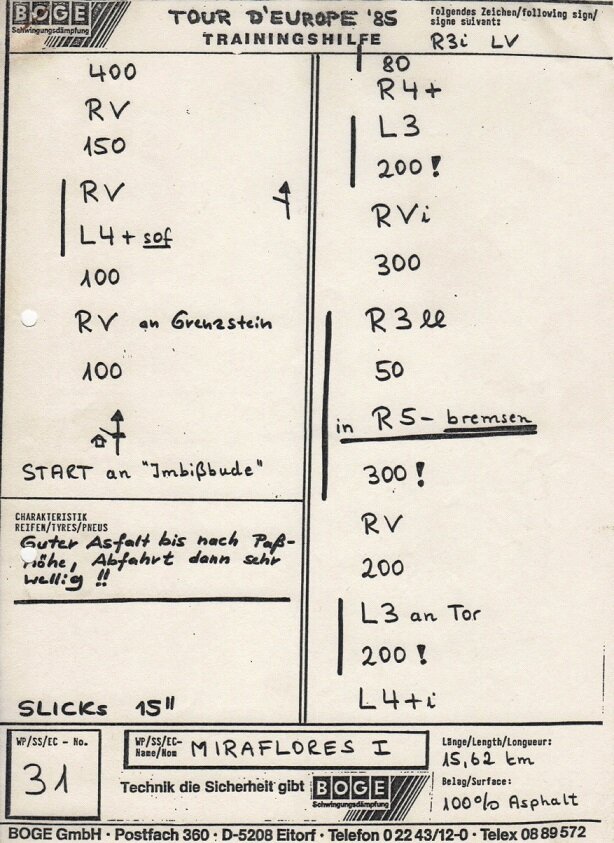 BOGE
Schwingungsdämpfung
TOUR D'EUROPE '85
TRAININGSHILFE
Folgendes Zeichen/following sign/
signe suivant:
R3i LV
400
RV
150
RV
L4+ sof
100
RV an Grenzstein
100
START an "Imbißbude"
CHARAKTERISTIK
REIFEN/TYRES/PNEUS
Guter Asfalt bis nach Paß-
höhe, Abfahrt dann sehr
wellig !!
SLICKs 15"
80
R4+
L3
200!
RVi
300
R3ll
50
in R5- bremsen
300!
RV
200
L3 an Tor
200!
L4+i
WP/SS/EC - No.
31
WP/SS/EC-
Name/Nom
MIRAFLORES I
Technik die Sicherheit gibt
BOGE
Schwingungsdämpfung
Länge/Length/Longueur:
15,62 km
Belag/Surface:
100% Asphalt
BOGE GmbH · Postfach 360 · D-5208 Eitorf · Telefon 0 22 43/12-0 · Telex 08 89 572